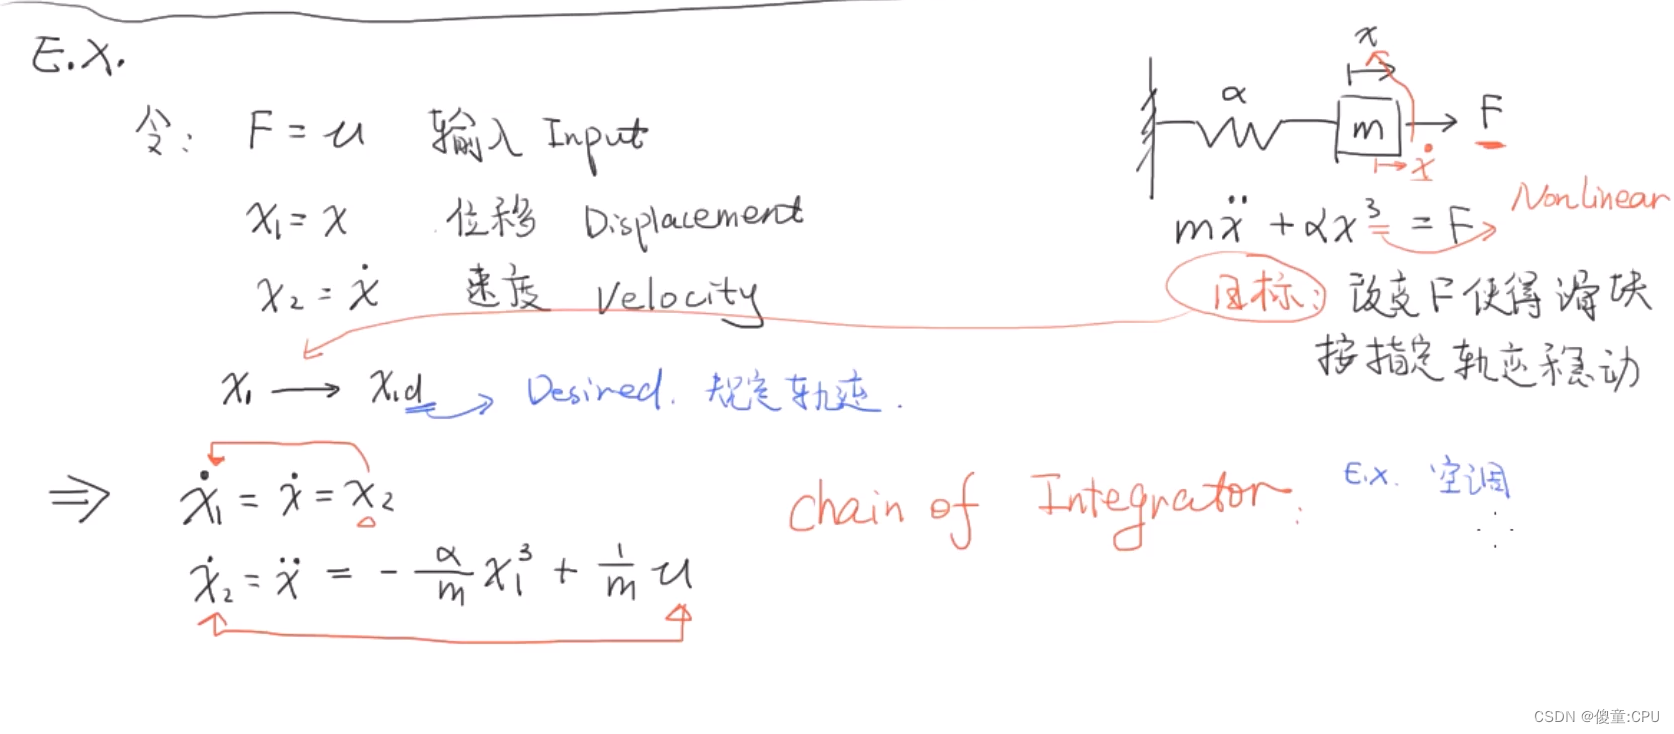 E.X.
令: F = u 输入 Input
x₁ = x 位移 Displacement
x₂ = ẋ 速度 Velocity
x₁ → x₁d → Desired. 规定轨迹.
⇒ ẋ₁ = ẋ = x₂
ẋ₂ = ẍ = - α/m x₁³ + 1/m u
x
α
m
F
ẋ
Nonlinear
mẍ + αx³ = F
目标: 改变F使得滑块
按指定轨迹移动
Chain of Integrator:
E.x. 空调
CSDN @傻童:CPU